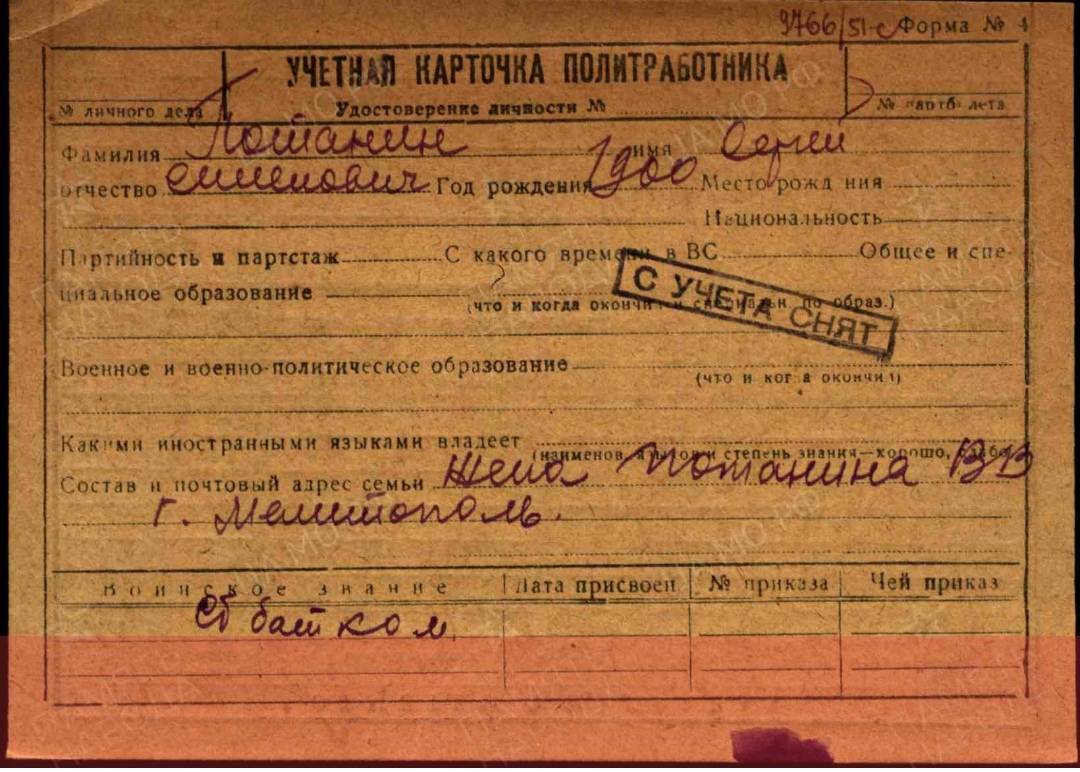 9766/51-с Форма № 4
УЧЕТНАЯ КАРТОЧКА ПОЛИТРАБОТНИКА
№ личного дела Удостоверение личности № № партбилета
Фамилия Потанин имя Сергей
отчество Семенович Год рождения 1900 Место рождения
Национальность
Партийность и партстаж С какого времени в ВС Общее и спе-
циальное образование
(что и когда окончил и специальн. по образ.)
С УЧЕТА СНЯТ
Военное и военно-политическое образование
(что и когда окончил)
Какими иностранными языками владеет
(наименов. языков и степень знания—хорошо, слабо)
Состав и почтовый адрес семьи Жена Потанина ВВ
г. Мелитополь.
Воинское звание Дата присвоен № приказа Чей приказ
Ст батком